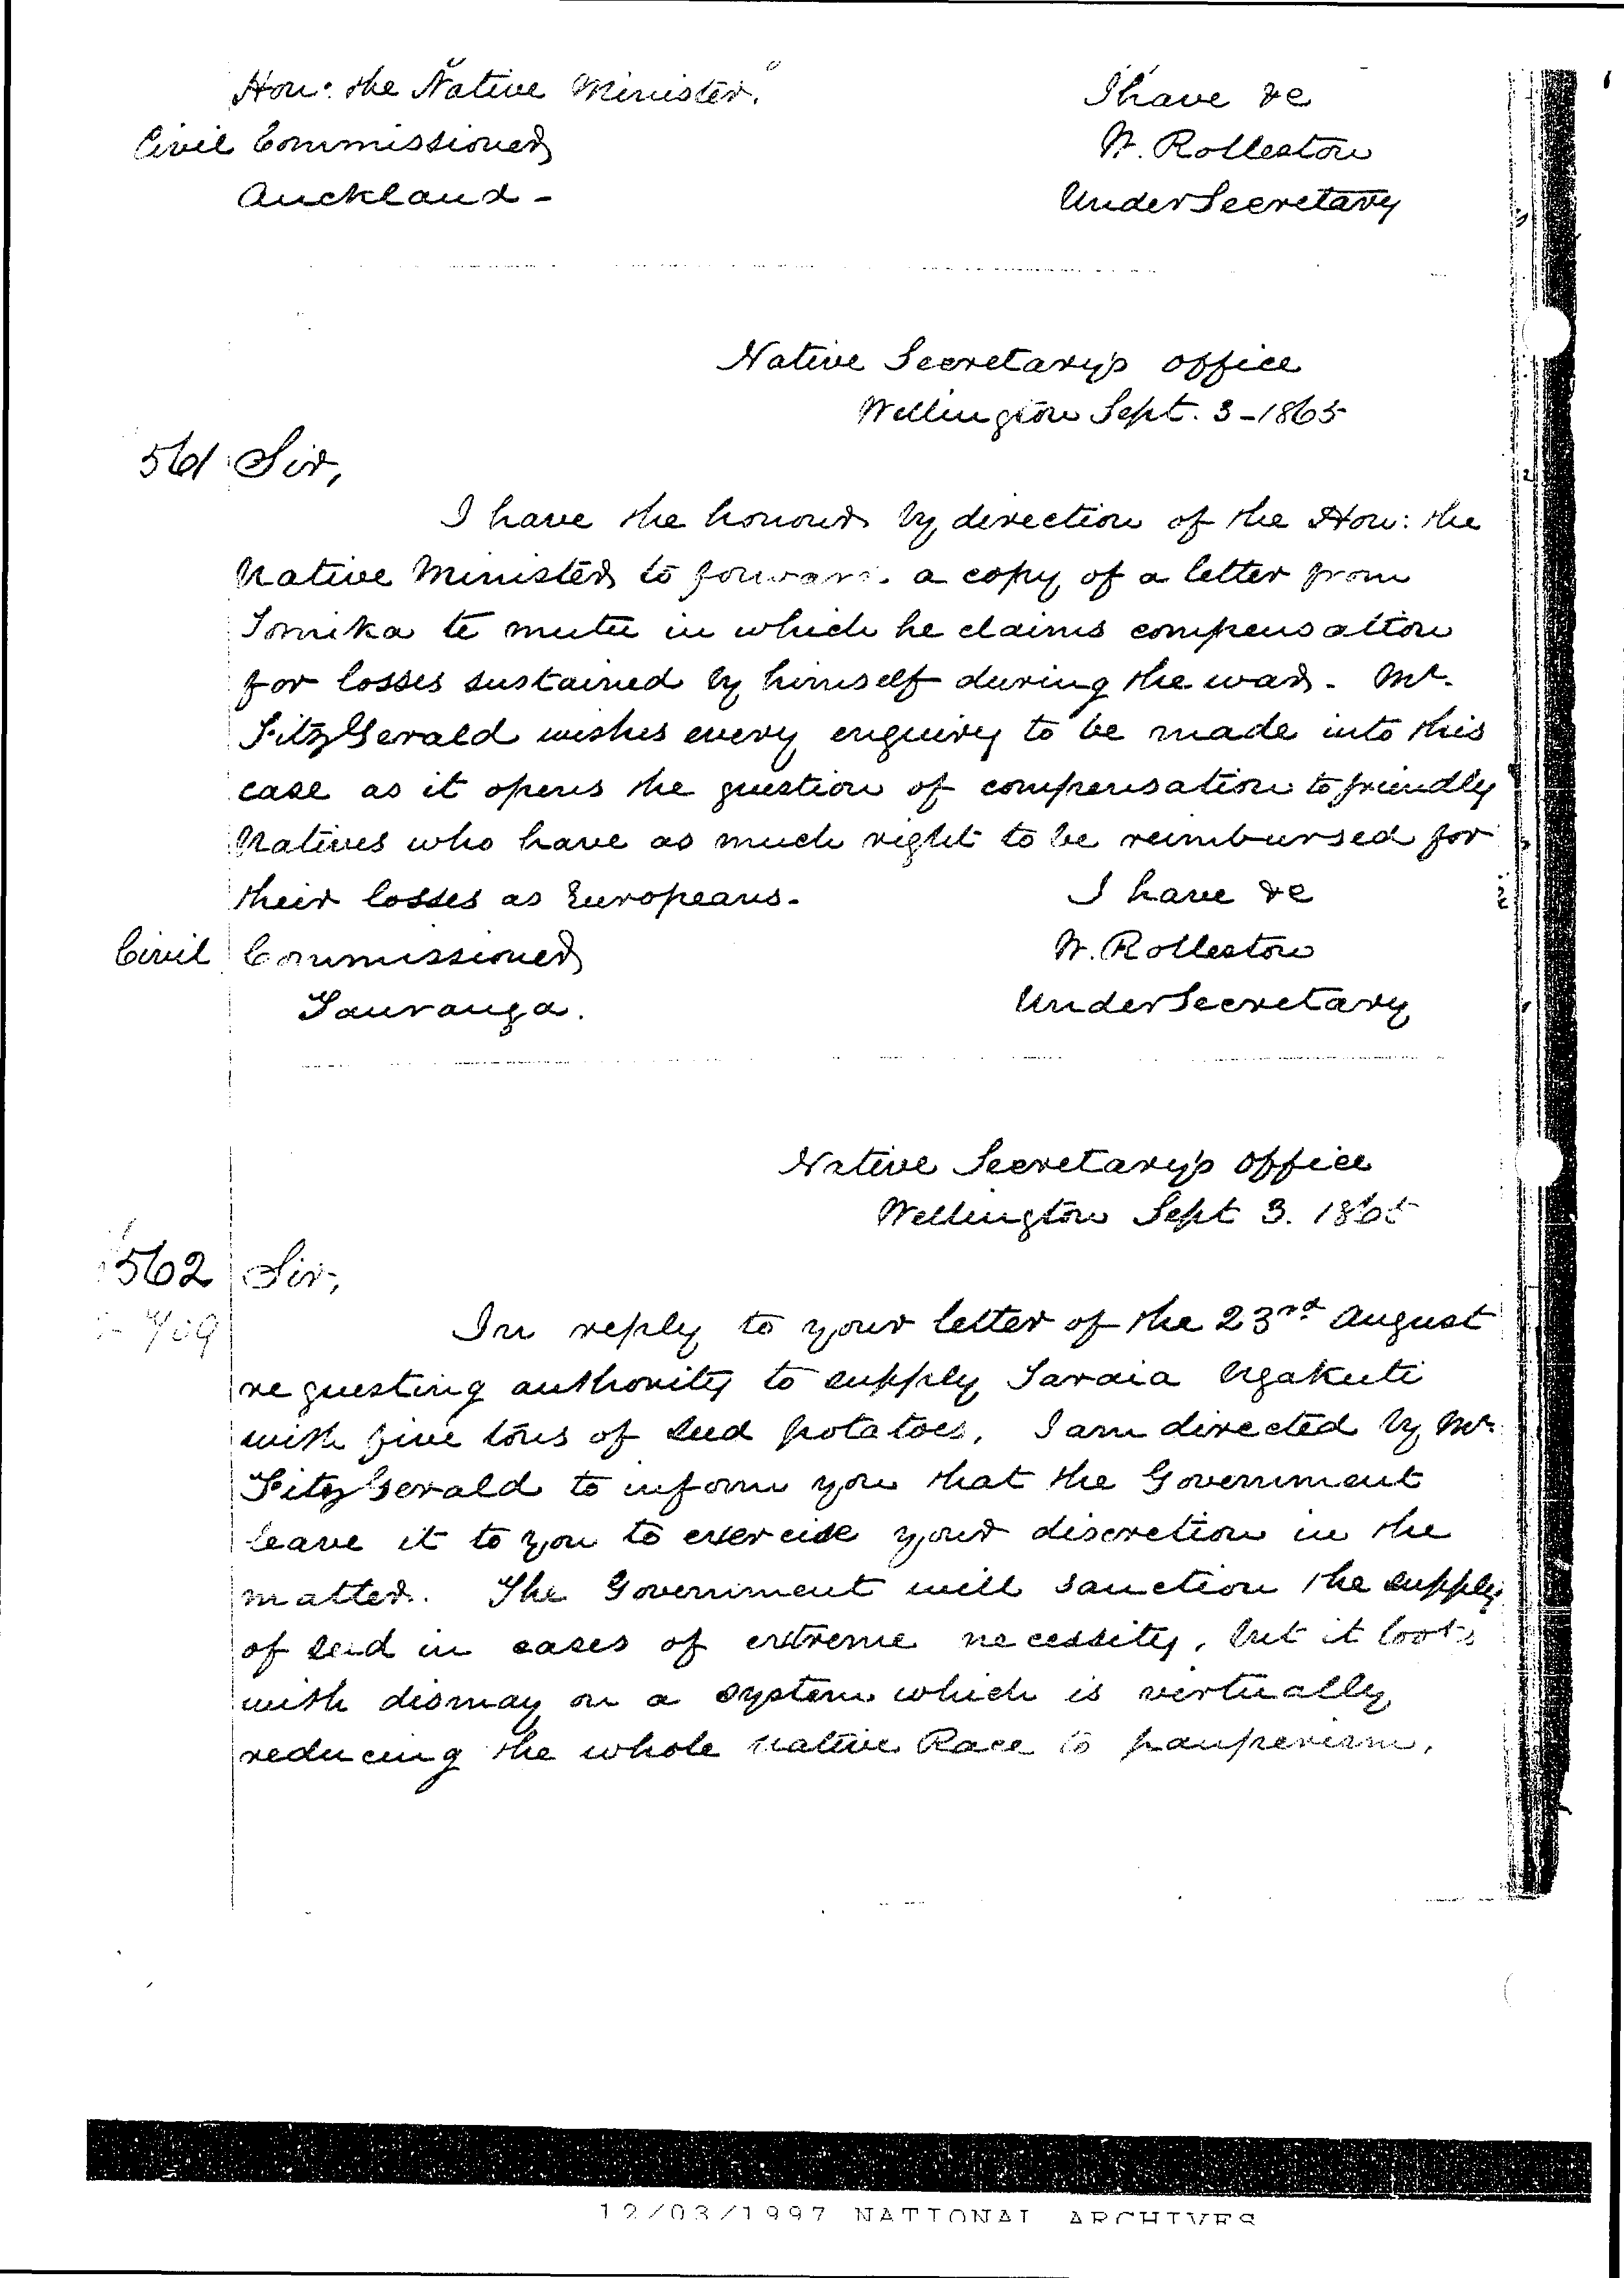 Hon: the Native Minister."
I have &c
Civil Commissioner
W. Rolleston
Auckland -
Under Secretary
Native Secretary's Office
Wellington Sept. 3 - 1865
561 Sir,
I have the honour by direction of the Hon: the
Native Minister to forward a copy of a letter from
Tomika te mutu in which he claims compensation
for losses sustained by himself during the war. Mr.
FitzGerald wishes every enquiry to be made into this
case as it opens the question of compensation to friendly
Natives who have as much right to be reimbursed for
their losses as Europeans.
I have &c
Civil Commissioner
W. Rolleston
Tauranga.
Under Secretary
Native Secretary's Office
Wellington Sept 3. 1865
562 Sir,
In reply to your letter of the 23rd August
requesting authority to supply Taraia Ngakuti
with five tons of seed potatoes, I am directed by Mr.
FitzGerald to inform you that the Government
leave it to you to exercise your discretion in the
matter. The Government will sanction the supply
of seed in cases of extreme necessity, but it looks
with dismay on a system which is virtually
reducing the whole native Race to pauperism.
12/03/1997 NATIONAL ARCHIVES